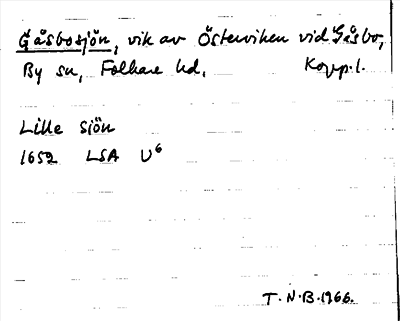 Gåsbosjön, vik av Österviken vid Gåsbo,
By sn, Folkare hd, Kopp. l.
Lille Siön
1652 LSA U6
T.N.B. 1966.